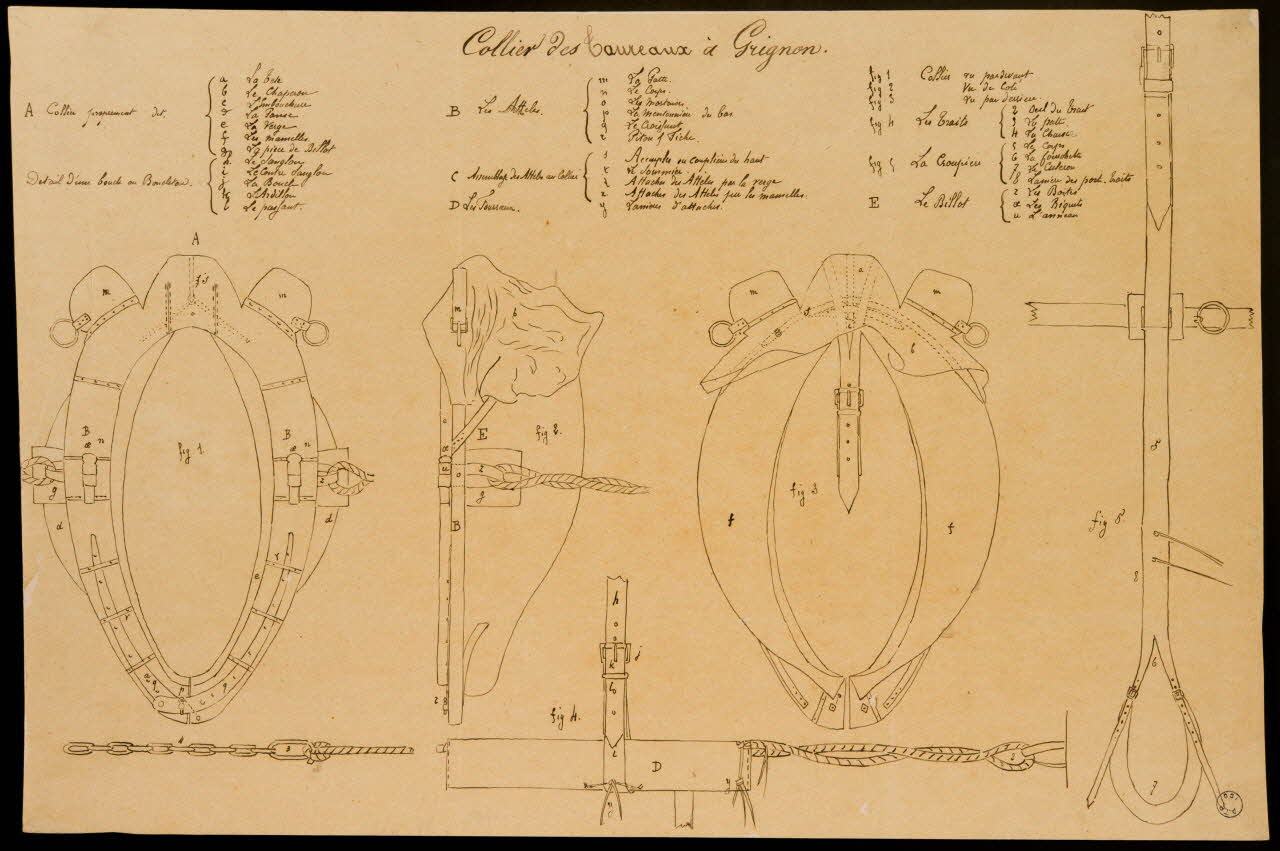 Collier des taureaux à Grignon.
A Collier proprement dit,
a La Tête
b Le Chaperon
c L'Embouchure
d La Panse
e La Verge
f Les mamelles
g La pièce de Billot
Detail d'une boucle ou Boucleteau.
h Le Sanglon
i Le Contre Sanglon
j La Boucle
k L'Ardillon
l Le passant.
B Les Attelles.
m La Patte
n Le Corps.
o Les mortaises
p La mentonnière du bas
q Le Croissant
r Piton & Fiche
C Assemblage des Attelles au Collier
s Accouples ou couplière du haut
t Le Sommier
Attaches des Attelles par la verge
x Attaches des Attelles par les mamelles.
y Lanières d'attaches.
D Les Fourreaux.
fig 1 Collier vu pardevant
fig 2 Vu de Coté
fig 3 Vu par derrière
fig 4 Les Traits
2 Oeil du Trait
3 La patte
4 La Chaine
fig 5 La Croupière
5 Le Corps
6 La fourchette
7 Le Culeron
8 Lanière des porte-traits
E Le Billot
z Les Boîtes
æ Les Briquets
u L'anneau
A
fig 1
m
m
B
æ n
B
æ n
g
z
d
d
e
r
fig 2.
m
b
E
z
g
B
fig 3
a
m
m
b
f
f
fig 4.
h
j
k
l
i
D
y
y
3
4
2
fig 5.
5
8
6
7